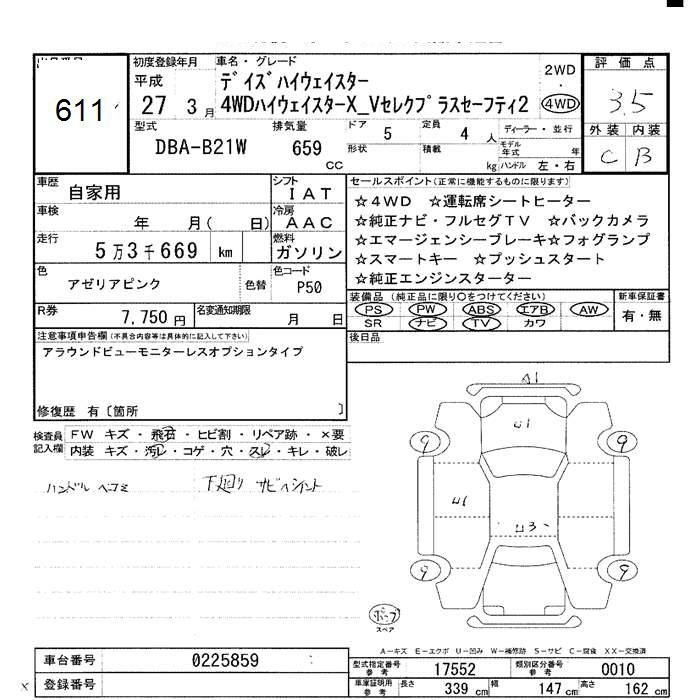 611
初度登録年月 車名・グレード
平成 27 3月
デイズハイウェイスター
4WDハイウェイスターX_Vセレクプラスセーフティ2
2WD・4WD
評価点
3.5
外装 内装
C B
型式 DBA-B21W
排気量 659 CC
ドア 5 定員 4 人
形状 積載 kg
ディーラー・並行
モデル年式 年
ハンドル 左・右
車歴 自家用
シフト IAT
車検 年 月( 日)
冷房 AAC
走行 5万3千669 km
燃料 ガソリン
色 アゼリアピンク 色替
色コード P50
R券 7,750円
名変通知期限 月 日
セールスポイント(正常に機能するものに限ります)
☆4WD ☆運転席シートヒーター
☆純正ナビ・フルセグTV ☆バックカメラ
☆エマージェンシーブレーキ☆フォグランプ
☆スマートキー ☆プッシュスタート
☆純正エンジンスターター
装備品(純正品に限り○をつけてください) 新車保証書
PS PW ABS エアB AW 有・無
SR ナビ TV カワ
後日品
注意事項申告欄(不具合内容等は具体的に記入して下さい)
アラウンドビューモニターレスオプションタイプ
修復歴 有〔箇所 〕
検査員記入欄
FW キズ・飛石・ヒビ割・リペア跡・×要
内装 キズ・汚レ・コゲ・穴・スレ・キレ・破レ
ハンドル ベコミ 下廻り サビペイント
A1
U1
9 9
U1
U3
9 9
ポンプ
スペア
A－キズ E－エクボ U－凹み W－補修跡 S－サビ C－腐食 XX－交換済
車台番号 0225859
登録番号
型式指定番号 参考 17552
類別区分番号 参考 0010
車庫証明用 参考 長さ 339 cm 幅 147 cm 高さ 162 cm